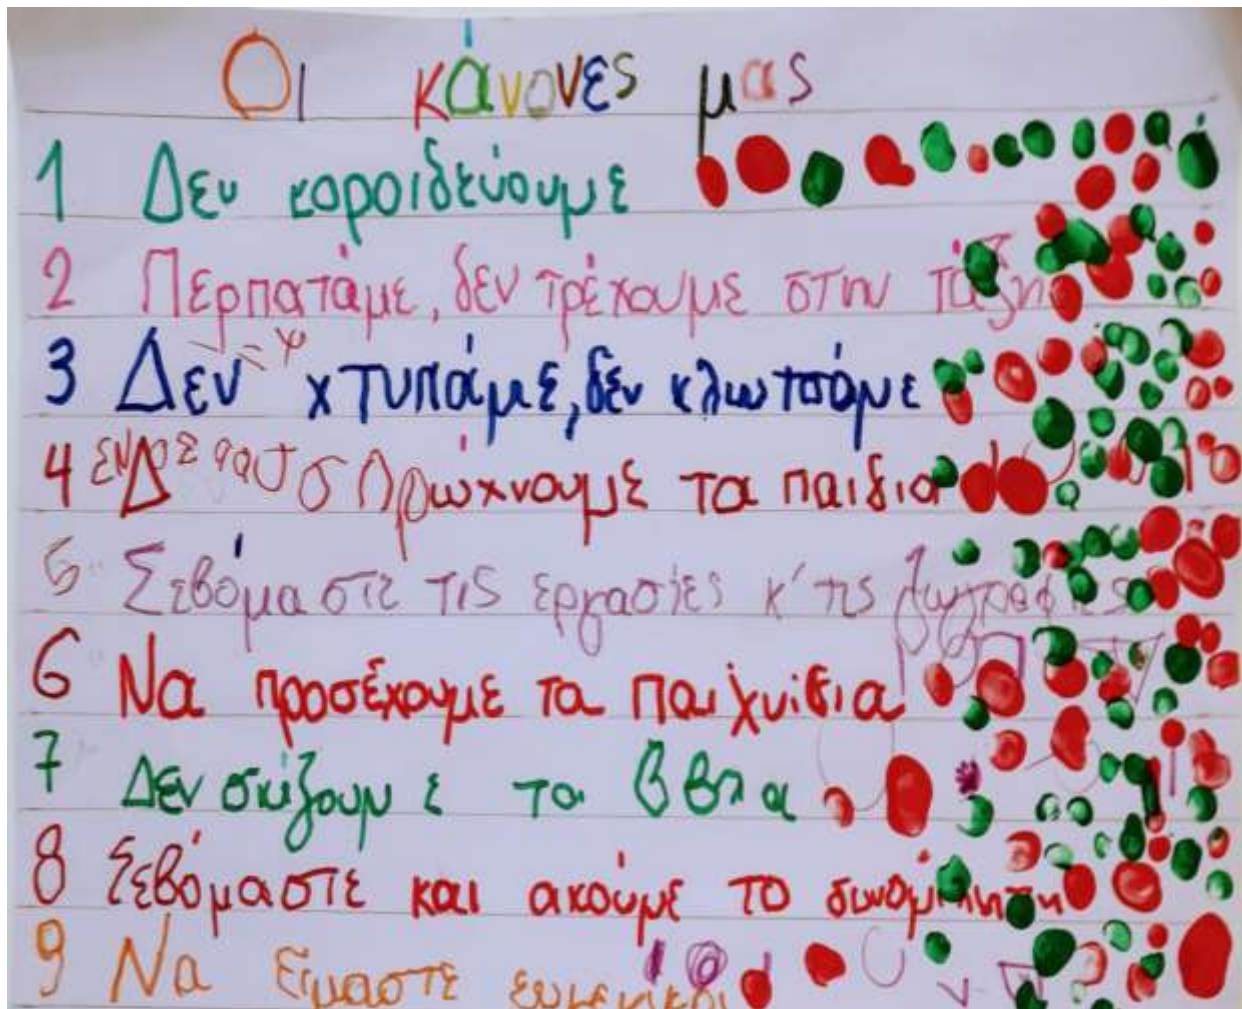 Οι κάνονες μας
1 Δεν κοροιδεύουμε
2 Περπατάμε, δεν τρέχουμε στην τάξη
3 Δεν χτυπάμε, δεν κλωτσάμε
4 σπρώχνουμε τα παιδιά
5 Σεβόμαστε τις εργασίες κ' τις ζωγραφιές
6 Να προσέχουμε τα παιχνίδια
7 Δεν σκίζουμε τα
8 Σεβόμαστε και ακούμε το συνομιλητή
9 Να είμαστε ευγενικοί